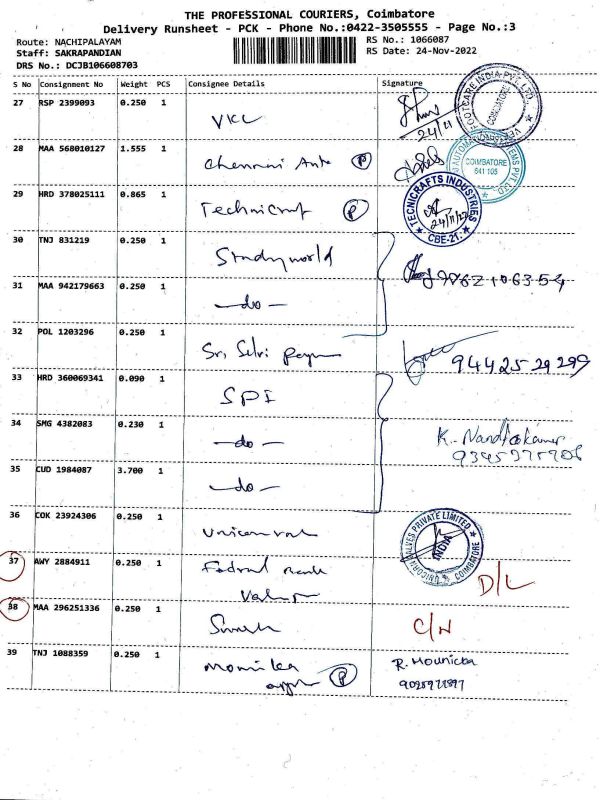 THE PROFESSIONAL COURIERS, Coimbatore
Delivery Runsheet - PCK - Phone No.:0422-3505555 - Page No.:3
Route: NACHIPALAYAM
RS No.: 1066087
Staff: SAKRAPANDIAN
RS Date: 24-Nov-2022
DRS No.: DCJB106608703
S No Consignment No Weight PCS Consignee Details Signature
27 RSP 2399093 0.250 1 VKC 24/11
FOOTCARE INDIA PVT. LTD. COIMBATORE
28 MAA 568010127 1.555 1 Chennai Auto P
COIMBATORE
641 105
29 HRD 378025111 0.865 1 Technicraft P
TECNICRAFTS INDUSTRIES
24/11/22
CBE-21.
30 TNJ 831219 0.250 1 Studyworld
31 MAA 942179663 0.250 1 -do-
32 POL 1203296 0.250 1 Sri Selvi 94425 29299
33 HRD 360069341 0.090 1 SPI
34 SMG 4382083 0.230 1 -do- K. Nandhakumar
35 CUD 1984087 3.700 1 -do-
36 COK 23924306 0.250 1
UNICORN VALVES PRIVATE LIMITED COIMBATORE
INDIA
37 AWY 2884911 0.250 1 Fedral Bank
D/L
38 MAA 296251336 0.250 1 Suresh C/N
39 TNJ 1088359 0.250 1 Monika P R. Mounicka